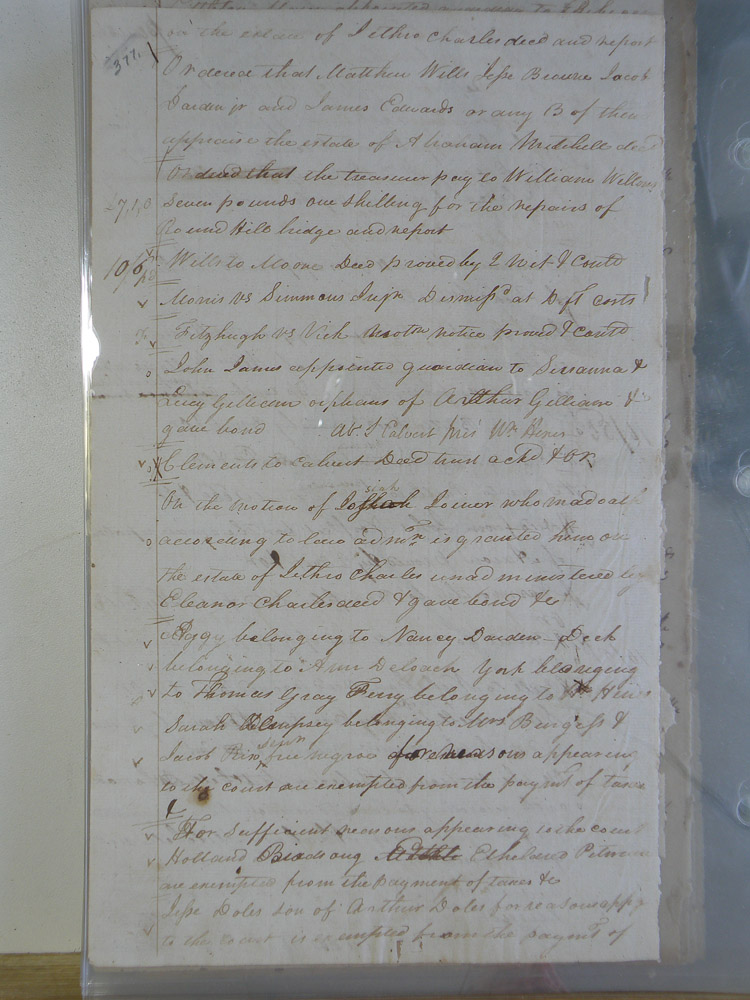 on the estate of Jethro Charles decd and report
377.
Ordered that Matthew Wills Jesse Browne Jacob
Darden jr and James Edwards or any 3 of them
appraise the estate of Abraham Mitchell decd
Ordered that the treasurer pay to William
£7,1,0 Seven pounds one shilling for the repairs of
Round Hill bridge and report
Wells to Moore Deed proved by 2 Wit & contd
Morris vs Simmons Injn Dismissd at Dft costs
Fitzhugh vs Vick notice proved & contd
John James appointed guardian to &
Lucy Gilliam orphans of Arthur Gilliam &
gave bond ab. S Calvert Wm Hines
Clements to Calvert Deed trust ackd & OR
On the motion of Joiner who made oath
according to law admn. is granted him on
the estate of Jethro Charles unadministered by
Eleanor Charles decd & gave bond &c
Aggy belonging to Nancy Darden
belonging to Ann Deloach York belonging
to Thomas Gray Ferry belonging to Hines
Sarah belonging to Mrs Burgess &
Jacob free negroe for reasons appearing
to the court are exempted from the paymt of taxes
For sufficient reasons appearing to the court
Holland Birdsong Etheland Pitman
are exempted from the payment of taxes &c
Jesse Doles son of Arthur Doles for reasons appg
to the court is exempted from the paymt. of